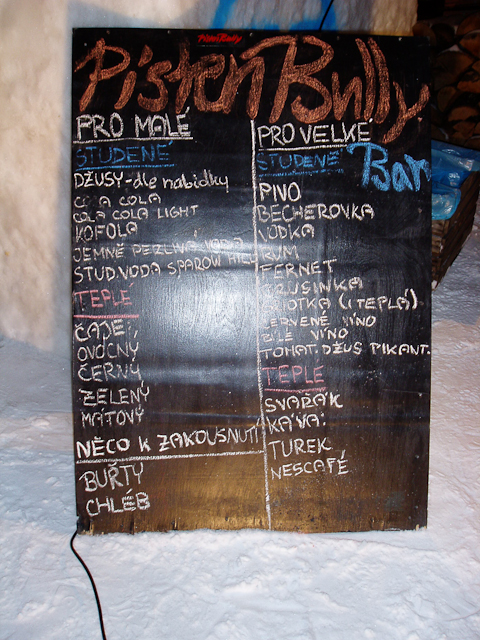 PistenBully
PistenBully
Bar
PRO MALÉ
STUDENÉ
DŽUSY-dle nabídky
COCA COLA
COLA COLA LIGHT
KOFOLA
JEMNĚ PERLIVÁ VODA
STUD.VODA SPAROW HILL
TEPLÉ
ČAJE:
OVOCNÝ
ČERNÝ
ZELENÝ
MÁTOVÝ
NĚCO K ZAKOUSNUTÍ
BUŘTY
CHLÉB
PRO VELKÉ
STUDENÉ
PIVO
BECHEROVKA
VODKA
RUM
FERNET
GRIOTKA (I TEPLÁ)
ČERVENÉ VÍNO
BÍLÉ VÍNO
TOMAT. DŽUS PIKANT.
TEPLÉ
SVAŘÁK
KÁVA:
TUREK
NESCAFÉ